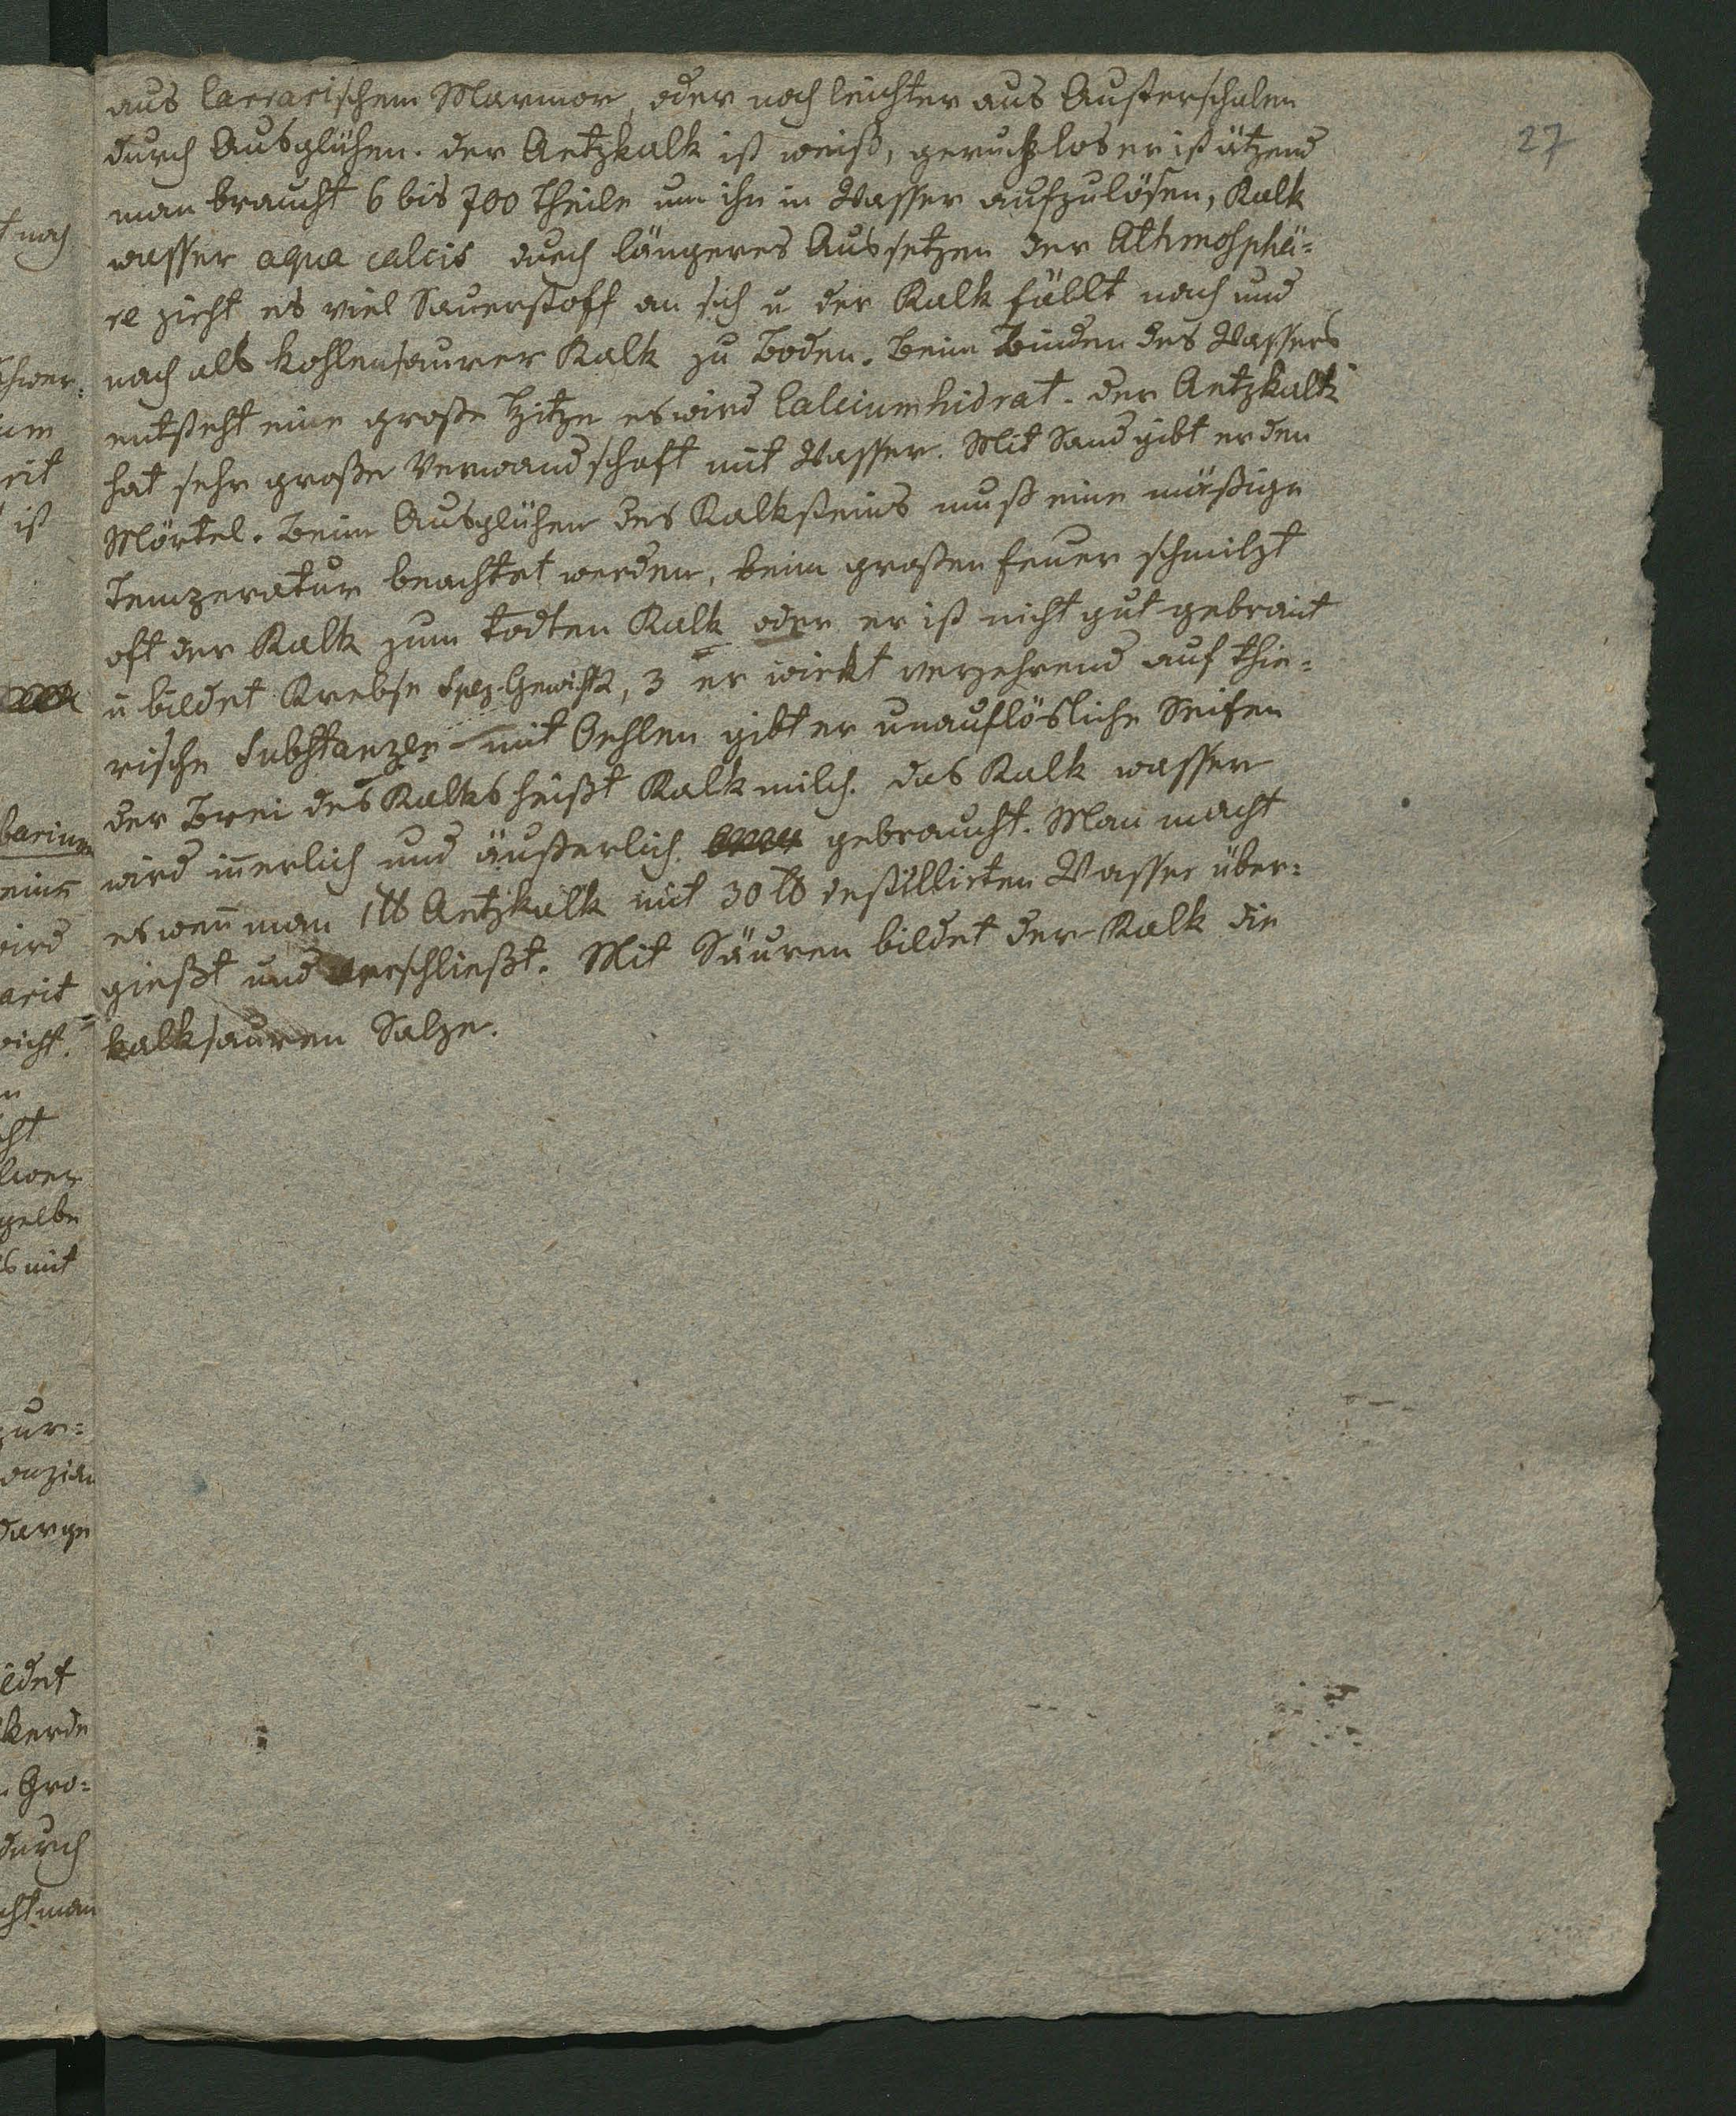 27
aus Carrarischem Marmor, oder noch leichter aus Austerschalen
durch Ausglühen. der Aetzkalk ist weiß, geruchlos er ist ätzend
man braucht 6 bis 700 Theile um ihn in Wasser aufzulösen, Kalk
wasser aqua calcis durch längeres Aussetzen der Athmosphä=
re zieht es viel Sauerstoff an sich u der Kalk fällt nach und
nach als kohlensaurer Kalk zu Boden. Beim Binden des Wassers
entsteht eine große Hitze es wird Calciumhidrat. der Aetzkalk
hat sehr große Verwandschaft mit Wasser. Mit Sand gibt er den
Mörtel. Beim Ausglühen des Kalksteins muß eine mäßige
Temperatur beachtet werden, beim großen Feuer schmilzt
oft der Kalk zum todten Kalk oder er ist nicht gut gebrant
u bildet Krebse Spez. Gewicht 2, 3 er wirkt verzehrend auf thie=
rische Substanzen mit Oehlen gibt er unauflösliche Seifen
der Brei des Kalks heißt Kalkmilch. das Kalk wasser
wird inerlich und äußerlich gebraucht. Man macht
es wen man 1 ℔ Aetzkalk mit 30 ℔ destillirten Wasser über=
gießt und verschließt. Mit Säuren bildet der Kalk die
kalksauren Salze.
noch
ist
barium
wird
gelbe
mit
zur=
darge
Gro=
durch
man